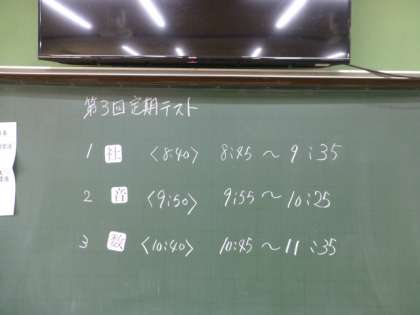 第3回定期テスト
1 社 〈8:40〉 8:45～9:35
2 音 〈9:50〉 9:55～10:25
3 数 〈10:40〉 10:45～11:35